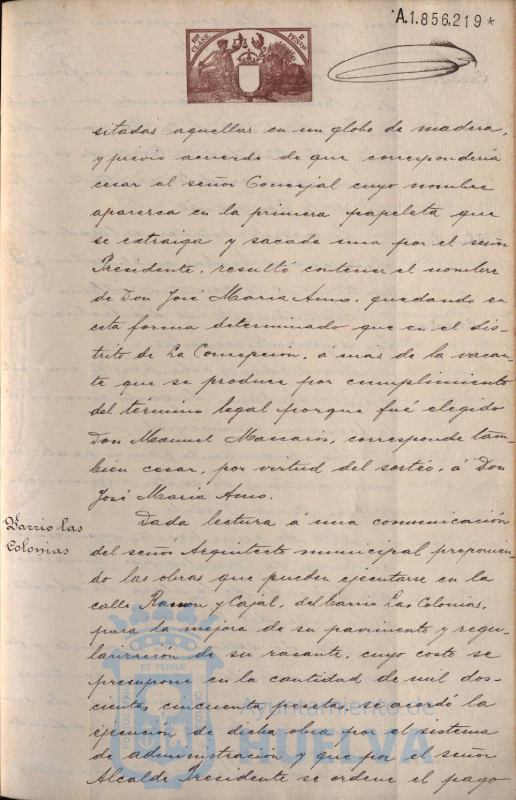 A.1.856.219*
10ª CLASE
2 PESETAS
sitadas aquellas en un globo de madera,
y previo acuerdo de que correspondería
cesar al señor Concejal cuyo nombre
aparezca en la primera papeleta que
se extraiga y sacada una por el señor
Presidente, resultó contener el nombre
de Don José Maria Amo, quedando en
esta forma determinado que en el dis-
trito de La Concepción, á mas de la vacan-
te que se produce por cumplimiento
del término legal porque fué elegido
Don Manuel Mascarós, corresponde tam-
bien cesar, por virtud del sorteo, á Don
José Maria Amo.
Barrio las
Colonias
Dada lectura á una comunicación
del señor Arquitecto municipal proponien-
do las obras que pueden ejecutarse en la
calle Ramon y Cajal, del barrio Las Colonias,
para la mejora de su pavimento y regu-
larización de su rasante, cuyo costo se
presupone en la cantidad de mil dos-
cientas cincuenta pesetas, se acordó la
ejecución de dicha obra por el sistema
de administración y que por el señor
Alcalde Presidente se ordene el pago
ET TERRÆ
Ayuntamiento de
HUELVA